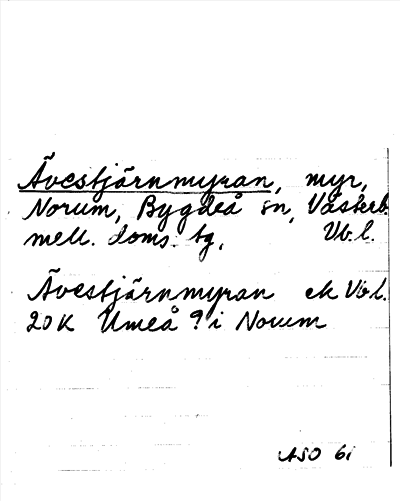 Ävestjärnmyran, myr,
Norum, Bygdeå sn, Västerb.
mell. doms. bg, Vb. l.
Ävestjärnmyran ek Vb l.
20K Umeå 9 i Norum
ASO 61